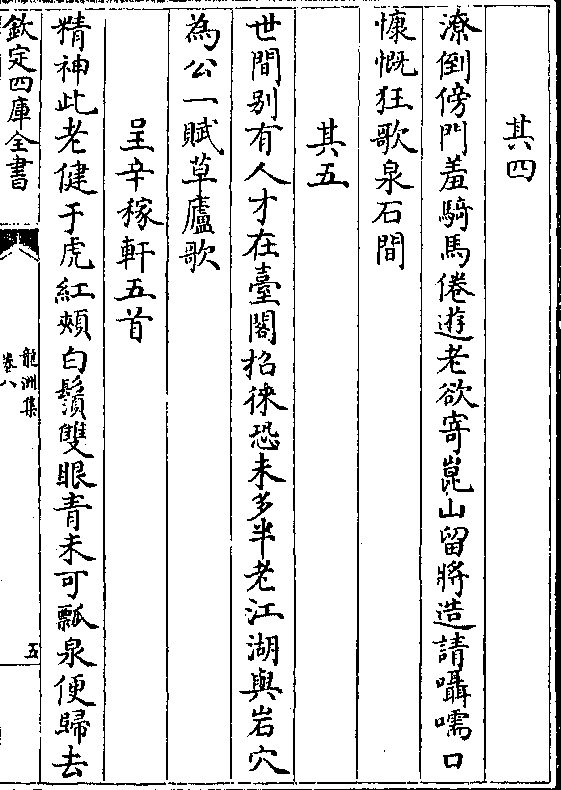 其四
潦倒傍門羞騎馬倦遊老欲寄崑山留將造請囁嚅口
慷慨狂歌泉石間
其五
世間别有人才在臺閣招徠恐未多半老江湖與岩穴
為公一賦草廬歌
呈辛稼軒五首
精神此老健于虎紅頰白鬚雙眼青未可瓢泉便歸去
欽定四庫全書
龍洲集
卷八
五